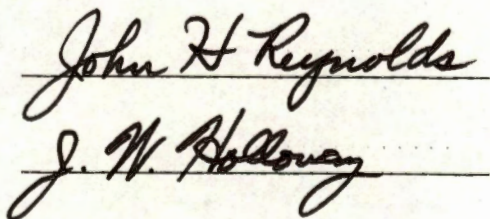 John H Reynolds
J. W. Holloway